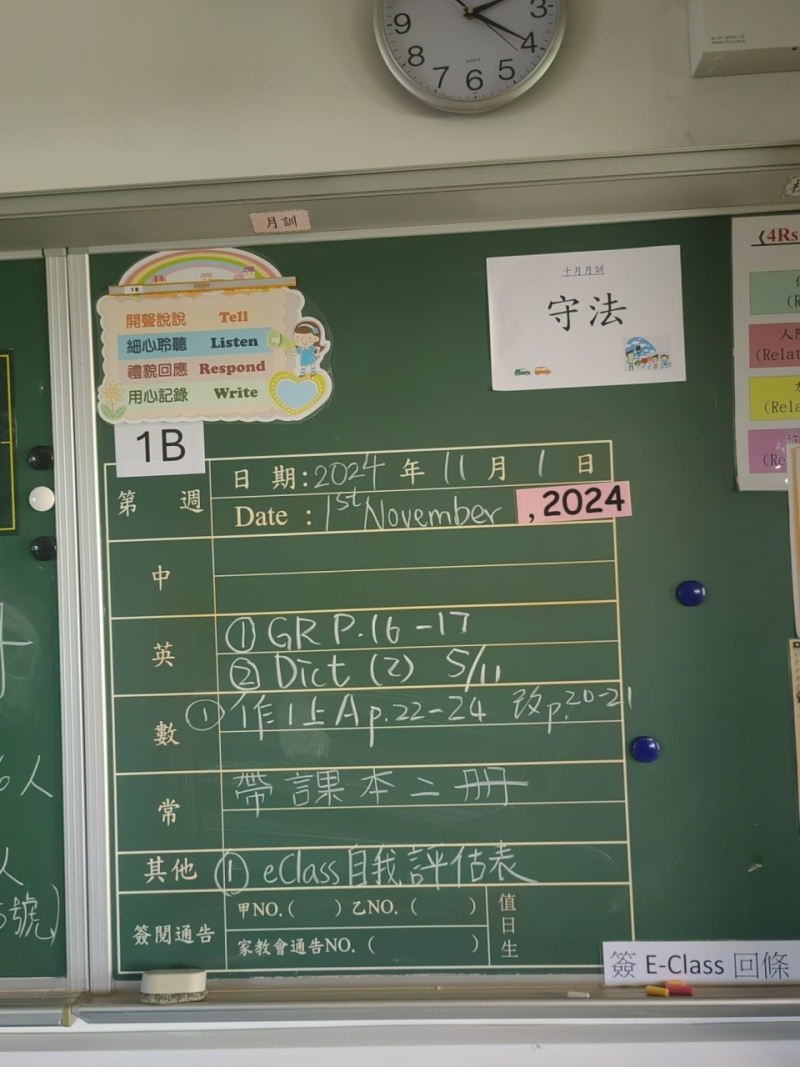 9
8
7
6
5
4
3
QUARTZ
月訓
1B
開聲說說 Tell
細心聆聽 Listen
禮貌回應 Respond
用心記錄 Write
十月月訓
守法
《4Rs
人際
(Relat
(Rela
(Re
1B
第 週
日 期:2024 年 11 月 1 日
Date : 1st November , 2024
中
英
① GR P.16-17
② Dict (2) 5/11
數
① 作1上A p.22-24 改p.20-21
常
帶課本二冊
其他
① eClass自我評估表
簽閱通告
甲NO.( ) 乙NO. ( )
家教會通告NO. ( )
值日生
6人
人
號)
簽 E-Class 回條